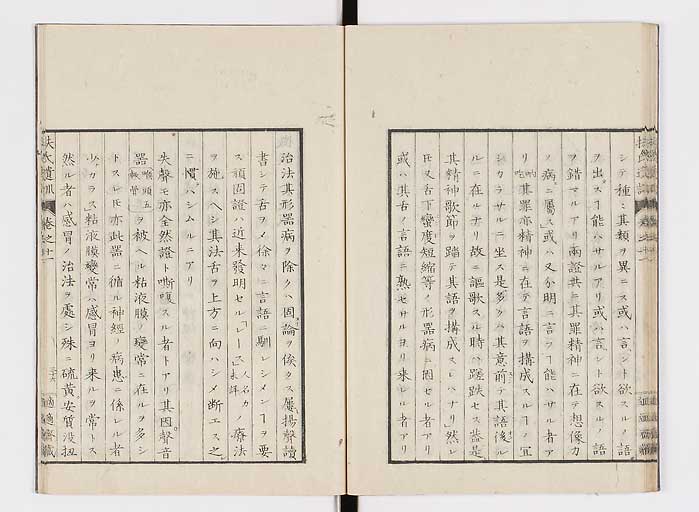 シテ種々其類ヲ異ニス或ハ言ント欲スルノ語
ヲ出スヿ能ハサルアリ或ハ言ント欲スルノ語
ヲ錯マルアリ兩證共ニ其罪精神ニ在テ想像力
ノ病ニ屬ス或ハ又分明ニ言フヿ能ハサル者ア
リ吶吃其罪亦精神ニ在テ言語ヲ構成スルヿノ宜
シカラサルニ坐ス是多クハ其意前テ其語後ル
ルニ在ルナリ故ニ謳歌スル時ハ蹉跌セス蓋是
其精神歌節ヲ踏テ其語ヲ構成スレハナリ然レ
𪜈又舌下蠻度短縮等ノ形器病ニ因セル者アリ
或ハ其舌ノ言語ニ熟セサルヨリ来レル者アリ
治法其形器病ノ除クハ固ヨリ論ヲ俟タス屢揚聲讀
書シテ舌ヲメ徐々ニ言語ニ馴レシメンヿヲ要
ス頑固證ハ近来發明セル「レース」人名カ未詳ノ療法
ヲ施スヘシ其法舌ヲ上方ニ向ハシメ断エス之
ニ慣ハシムルニアリ
失聲モ亦全然證ト嘶嗄スル者トアリ其因聲音
器喉頭五軟骨ヲ被ヘル粘液膜ノ變常ニ在ルヲ多シ
トスレ𪜈亦此器ニ循ル神經ノ病患ニ係レル者
少カラス粘液膜變常ハ感冒ヨリ来ルヲ常トス
然ル者ハ感冒ノ治法ヲ處シ殊ニ硫黄安質没扭
扶氏遺訓 卷之十一
適適齋藏